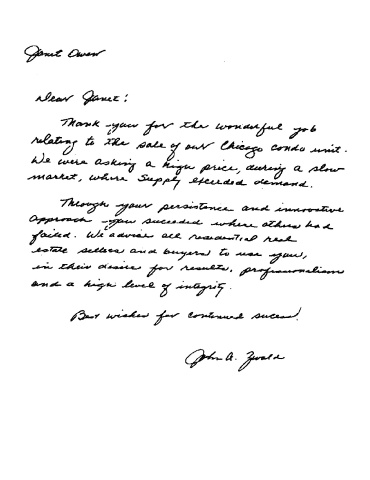 Janet Owen
Dear Janet:
Thank-you for the wonderful job
relating to the sale of our Chicago condo unit.
We were asking a high price, during a slow
market, where Supply exceeded demand.
Through your persistence and innovative
approach you succeeded where others had
failed. We advise all residential real
estate sellers and buyers to use you,
in their desire for results, professionalism
and a high level of integrity.
Best wishes for continued success.
John A.